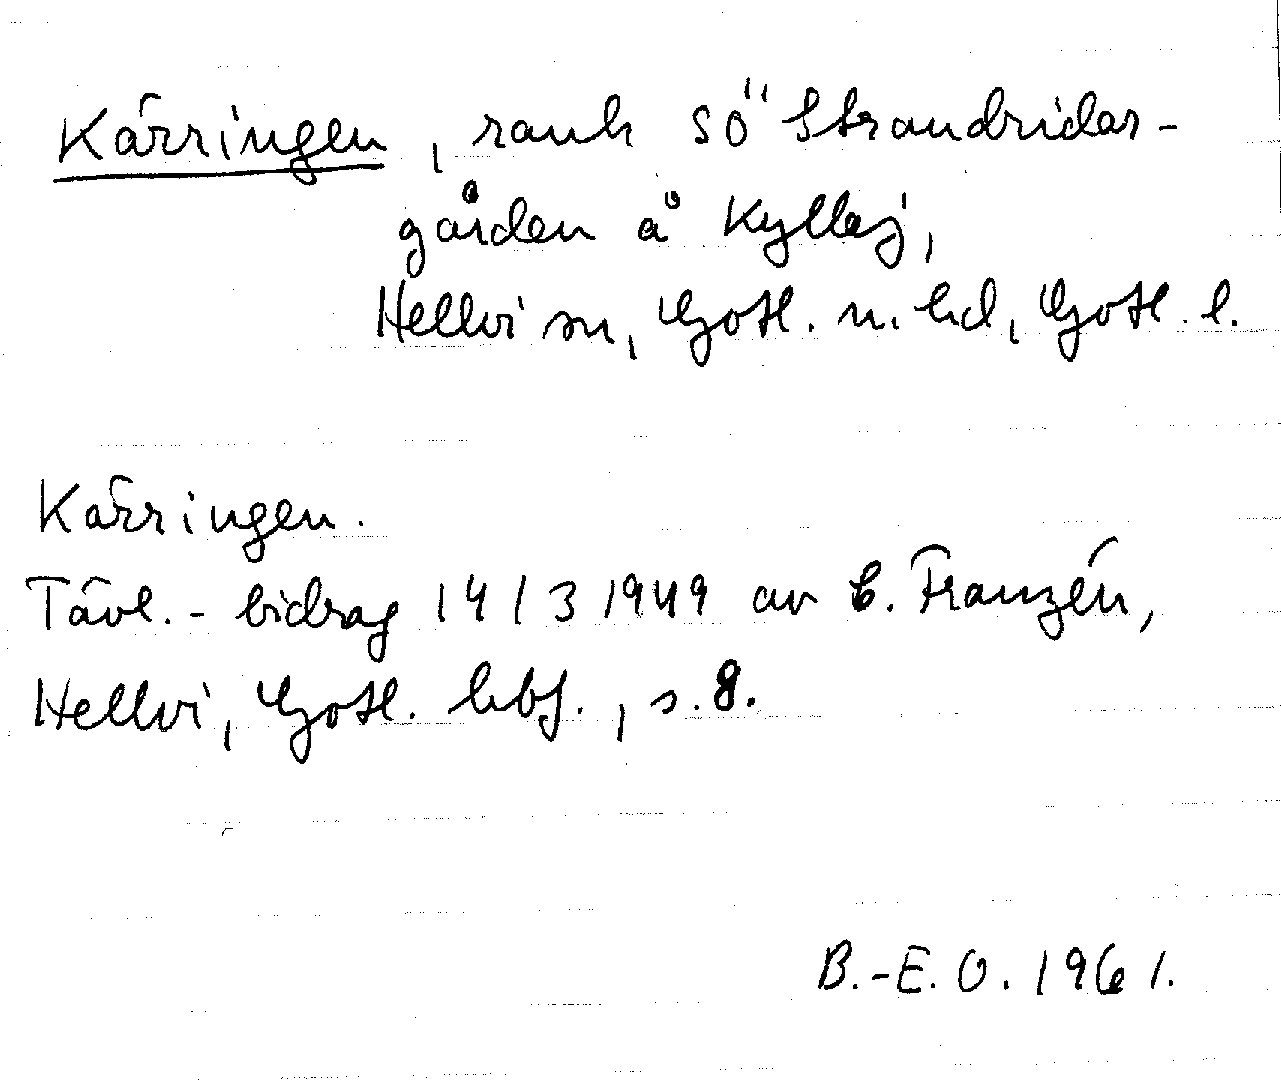 Kärringen, rauk sö Strandridar-
gården å Kyllej,
Hellvi sn, Gotl. n. hd, Gotl. l.
Kärringen.
Tävl.-bidrag 14/3 1949 av C. Franzén,
Hellvi, Gotl. hbf., s. 8.
B.-E.O. 1961.